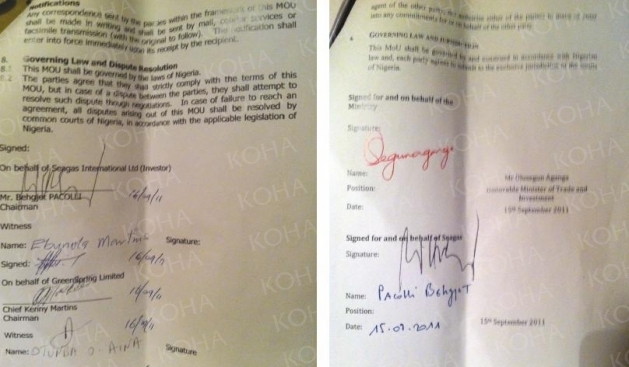 Notifications
Any correspondence sent by the parties within the framework of this MOU
shall be made in writing and shall be sent by mail, courier services or
facsimile transmission (with the original to follow). The notification shall
enter into force immediately upon its receipt by the recipient.
8. Governing Law and Dispute Resolution
8.1 This MOU shall be governed by the laws of Nigeria.
8.2 The parties agree that they shall strictly comply with the terms of this
MOU, but in case of a dispute between the parties, they shall attempt to
resolve such dispute though negotiations. In case of failure to reach an
agreement, all disputes arising out of this MOU shall be resolved by
common courts of Nigeria, in accordance with the applicable legislation of
Nigeria.
Signed:
On behalf of Seagas International Ltd (Investor)
Mr. Behgjet PACOLLI 16/09/11
Chairman
Witness
Name: Martins Signature:
Signed: 16/09/11
On behalf of Greenspring Limited
16/09/11
Chief Kenny Martins
Chairman
Witness 16/9/11
Name: O. AINA Signature
agent of the other party
into any commitments for or on behalf of the other party
GOVERNING LAW AND
This MoU shall be governed by and construed in accordance with Nigerian
law and, each party agrees to submit to the exclusive jurisdiction of the courts
of Nigeria.
Signed for and on behalf of the
Ministry
Signature:
Name: Mr Olusegun Aganga
Position: Honorable Minister of Trade and
Investment
Date: 15th September 2011
Signed for and on behalf of Seagas
Signature:
Name: PAcolli Behgjet
Position:
Date: 15.09.2011 15th September 2011
KOHA